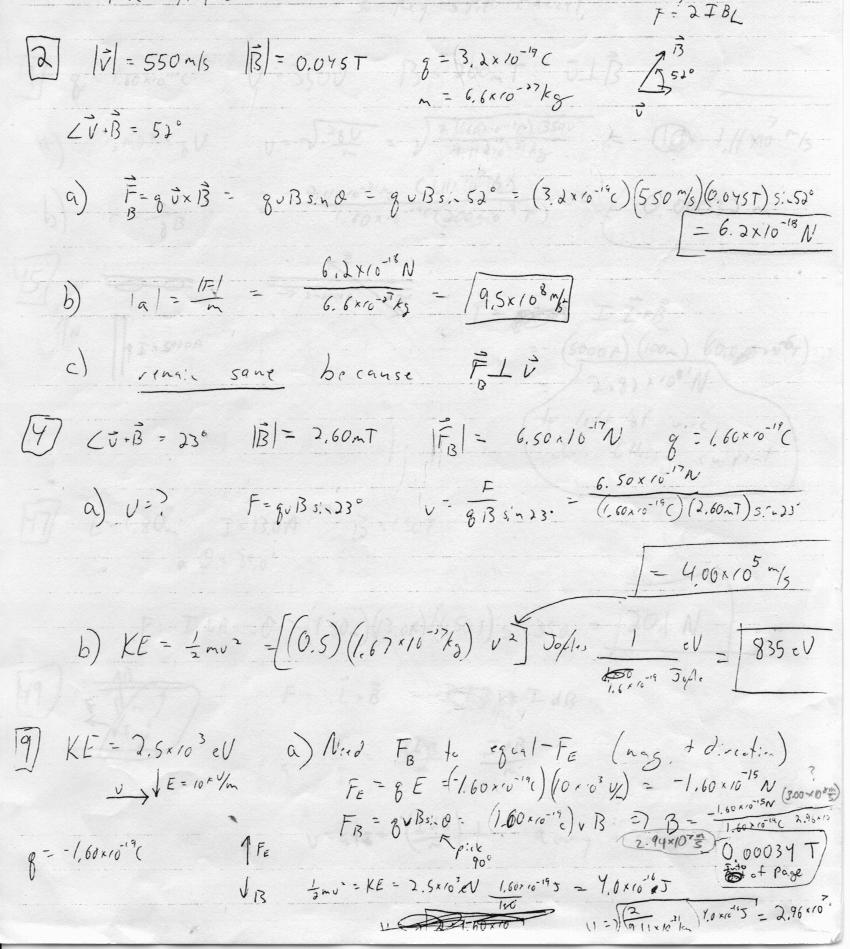 F = 2IBL
2 |v⃗| = 550 m/s |B⃗| = 0.045T q = 3.2x10⁻¹⁹C
m = 6.6x10⁻²⁷kg
B⃗
52°
v⃗
∠v⃗+B⃗ = 52°
a) F⃗_B = q v⃗xB⃗ = qvB sin θ = qvB sin 52° = (3.2x10⁻¹⁹C)(550 m/s)(0.045T) sin 52°
= 6.2x10⁻¹⁸N
b) |a| = |F|/m = 6.2x10⁻¹⁸N / 6.6x10⁻²⁷kg = 9.5x10⁸ m/s²
c) remain same because F⃗_B ⊥ v⃗
4 ∠v⃗+B⃗ = 23° |B⃗| = 2.60mT |F⃗_B| = 6.50x10⁻¹⁷N q = 1.60x10⁻¹⁹C
a) v=? F=qvB sin 23° v = F / qB sin 23° = 6.50x10⁻¹⁷N / (1.60x10⁻¹⁹C)(2.60mT) sin 23°
= 4.00x10⁵ m/s
b) KE = ½mv² = [(0.5)(1.67x10⁻²⁷kg) v²] Joules 1 eV / 1.6x10⁻¹⁹ Joule = 835 eV
9 KE = 2.5x10³ eV a) Need F_B to equal -F_E (mag. + direction)
v E = 10 kV/m F_E = qE = (-1.60x10⁻¹⁹C)(10x10³ V/m) = -1.60x10⁻¹⁵N ?
(3.00x10⁸ m/s)
F_B = qvB sin θ = (1.60x10⁻¹⁹C) vB ⇒ B = -1.60x10⁻¹⁵N / 1.60x10⁻¹⁹C 2.96x10⁷
pick 90°
2.94x10⁷ m/s
0.00034 T
into of page
q = -1.60x10⁻¹⁹C ↑F_E
↓B ½mv² = KE = 2.5x10³eV 1.60x10⁻¹⁹J = 4.0x10⁻¹⁶J
2 / 9.11x10⁻³¹kg 4.0x10⁻¹⁶J = 2.96x10⁷